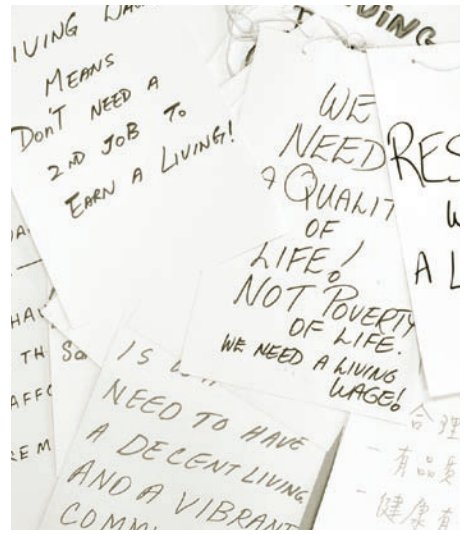 LIVING WA
MEANS
DON'T NEED A
2ND JOB TO
EARN A LIVING!
VING
WE
NEED
A QUALIT
OF
LIFE!
NOT POVERTY
OF LIFE.
WE NEED A LIVING
WAGE!
RES
W
A L
HAV
TH
AFFO
EM
So
IS
NEED TO HAVE
A DECENT LIVING
AND A VIBRANT
COMM
合理
- 有品質
- 健康有